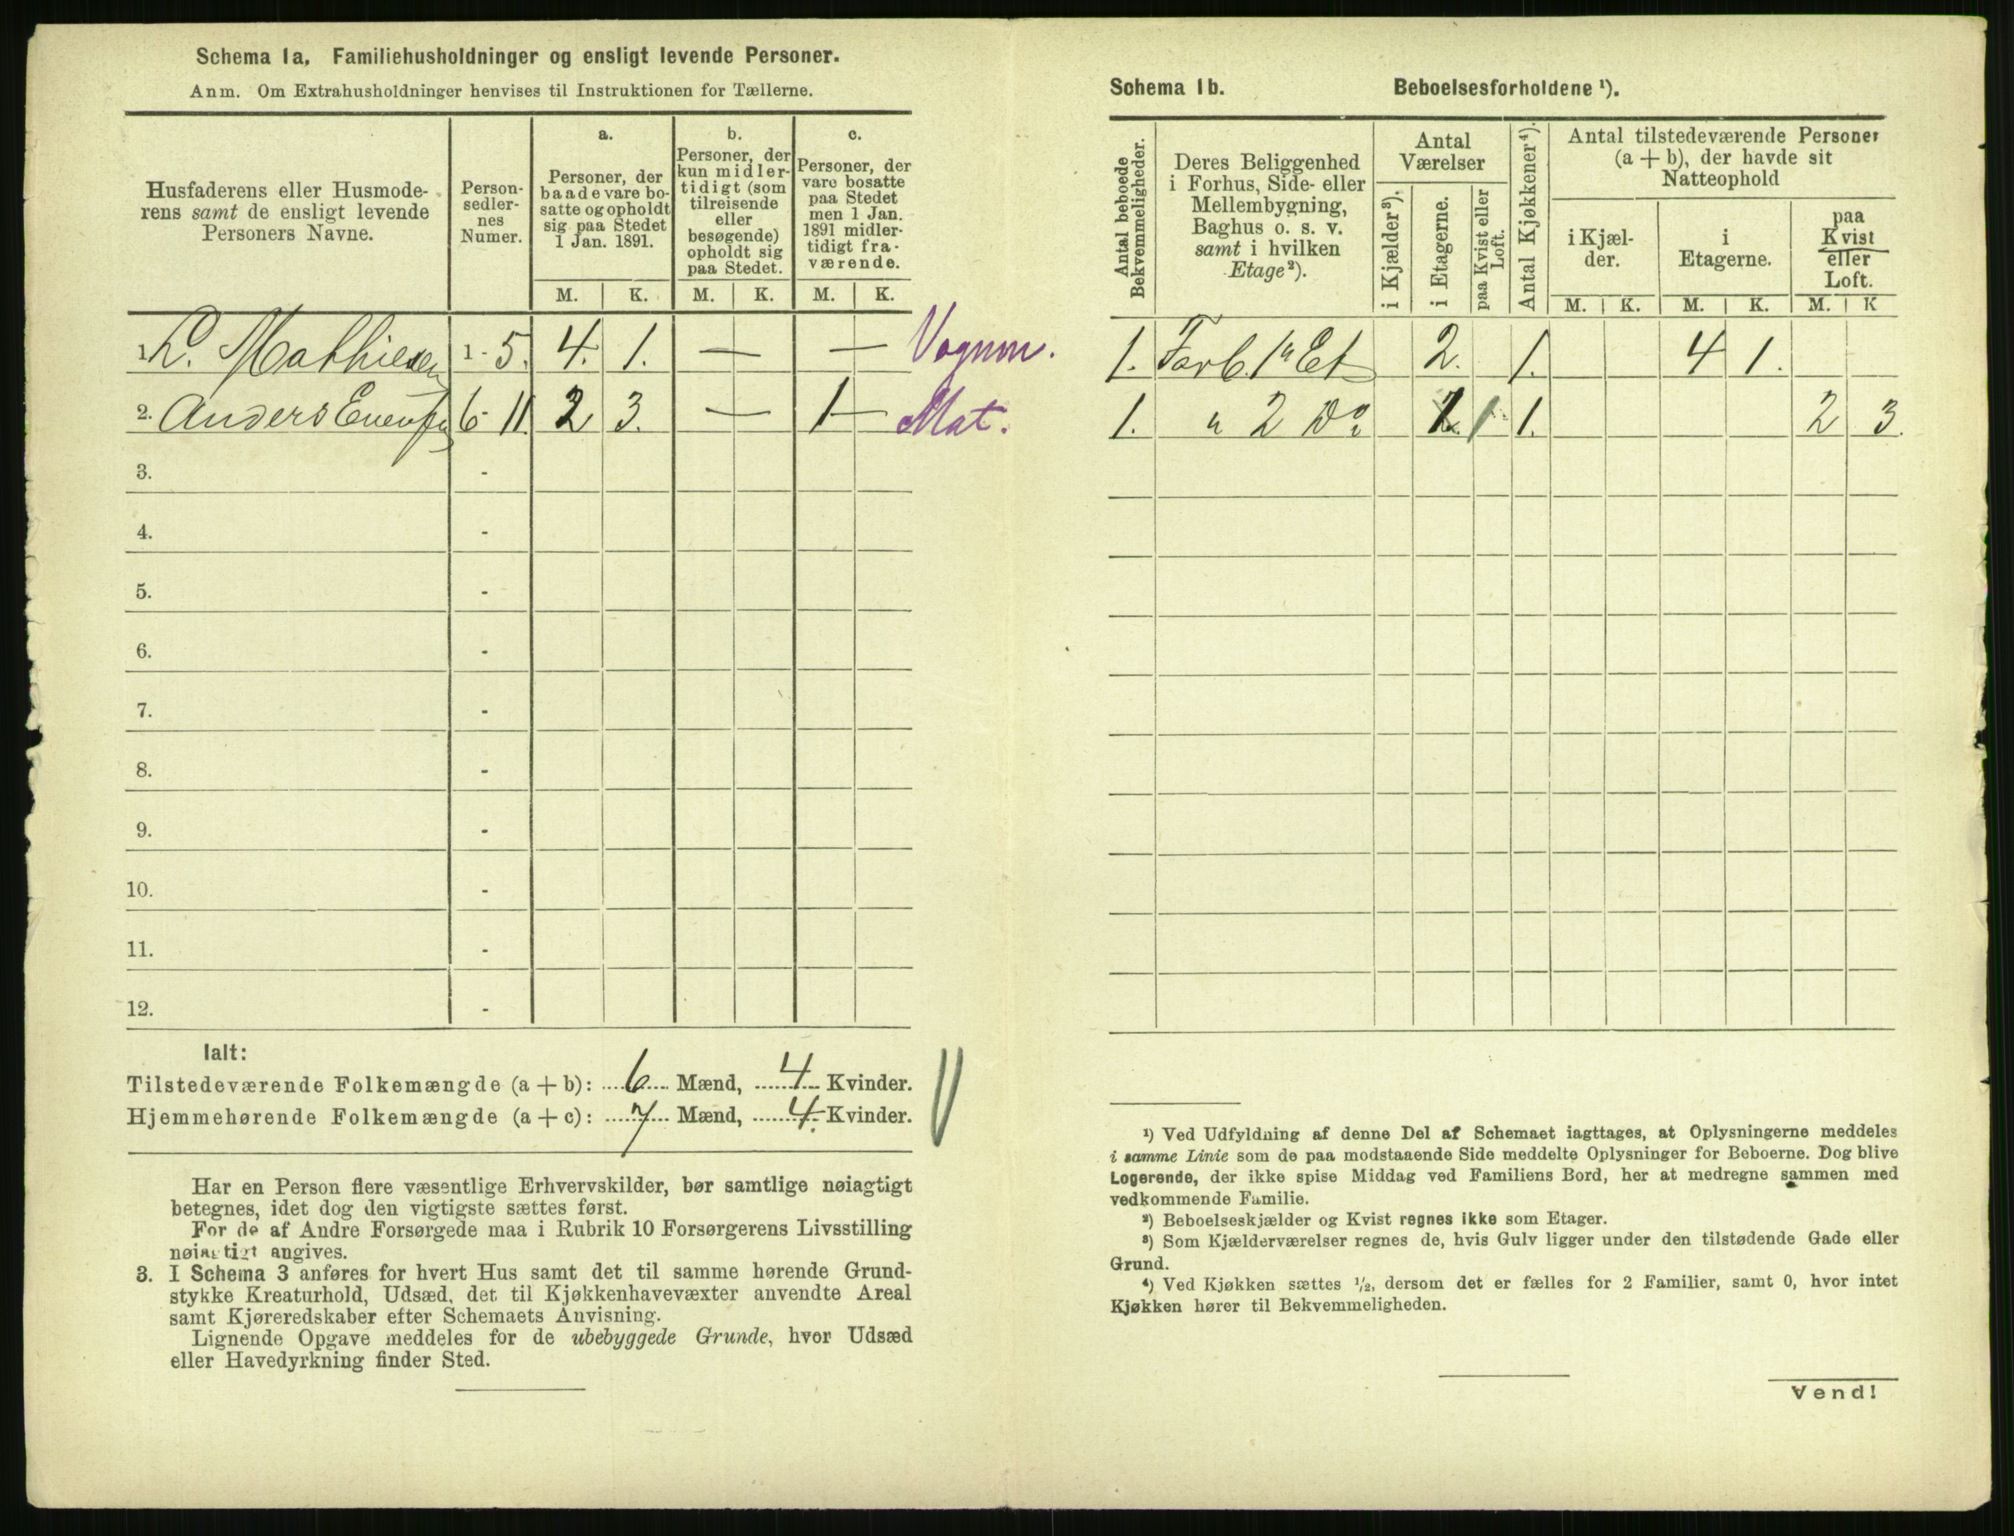 Schema 1a. Familiehusholdninger og ensligt levende Personer.
Anm. Om Extrahusholdninger henvises til Instruktionen for Tællerne.
Husfaderens eller Husmoderens samt de ensligt levende Personers Navne.
Personsedlernes Numer.
a.
Personer, der baade vare bosatte og opholdt sig paa Stedet 1 Jan. 1891.
b.
Personer, der kun midlertidigt (som tilreisende eller besøgende) opholdt sig paa Stedet.
c.
Personer, der vare bosatte paa Stedet men 1 Jan. 1891 midlertidigt fraværende.
M. K. M. K. M. K.
1. L. Mathiesen 1 - 5. 4. 1. — — Vognm.
2. Anders Evensen 6 - 11. 2 3. — 1 — Mat.
3. -
4. -
5. -
6. -
7. -
8. -
9. -
10. -
11. -
12. -
Ialt:
Tilstedeværende Folkemængde (a + b): 6 Mænd, 4 Kvinder.
Hjemmehørende Folkemængde (a + c): 7 Mænd, 4. Kvinder.
Har en Person flere væsentlige Erhvervskilder, bør samtlige nøiagtigt
betegnes, idet dog den vigtigste sættes først.
For de af Andre Forsørgede maa i Rubrik 10 Forsørgerens Livsstilling
nøiagtigt angives.
3. I Schema 3 anføres for hvert Hus samt det til samme hørende Grund-
stykke Kreaturhold, Udsæd, det til Kjøkkenhavevæxter anvendte Areal
samt Kjøreredskaber efter Schemaets Anvisning.
Lignende Opgave meddeles for de ubebyggede Grunde, hvor Udsæd
eller Havedyrkning finder Sted.
Schema 1b. Beboelsesforholdene ¹).
Antal beboede Bekvemmeligheder.
Deres Beliggenhed i Forhus, Side- eller Mellembygning, Baghus o. s. v. samt i hvilken Etage²).
Antal Værelser
i Kjælder³).
i Etagerne.
paa Kvist eller Loft.
Antal Kjøkkener⁴).
Antal tilstedeværende Personer (a + b), der havde sit Natteophold
i Kjælder.
i Etagerne.
paa Kvist eller Loft.
M. K. M. K. M. K
1. Forb. 1ª Et 2. 1. 4 1.
1. " 2 Dº 1 1. 2 3.
¹) Ved Udfyldning af denne Del af Schemaet iagttages, at Oplysningerne meddeles
i samme Linie som de paa modstaaende Side meddelte Oplysninger for Beboerne. Dog blive
Logerende, der ikke spise Middag ved Familiens Bord, her at medregne sammen med
vedkommende Familie.
²) Beboelseskjælder og Kvist regnes ikke som Etager.
³) Som Kjælderværelser regnes de, hvis Gulv ligger under den tilstødende Gade eller
Grund.
⁴) Ved Kjøkken sættes ½, dersom det er fælles for 2 Familier, samt 0, hvor intet
Kjøkken hører til Bekvemmeligheden.
Vend!